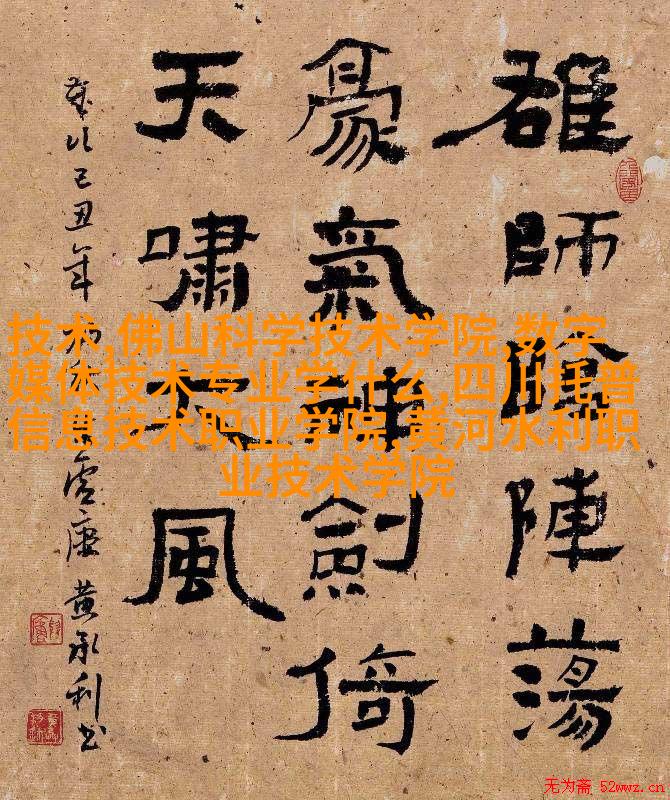 雄師陣蕩
豪氣劍倚
天嘯風
歲次己丑年
黄承利书
技术,佛山科学技术学院,数字
媒体技术专业学什么,四川托普
信息技术职业学院,黄河水利职
业技术学院
无为斋 52wwz.cn